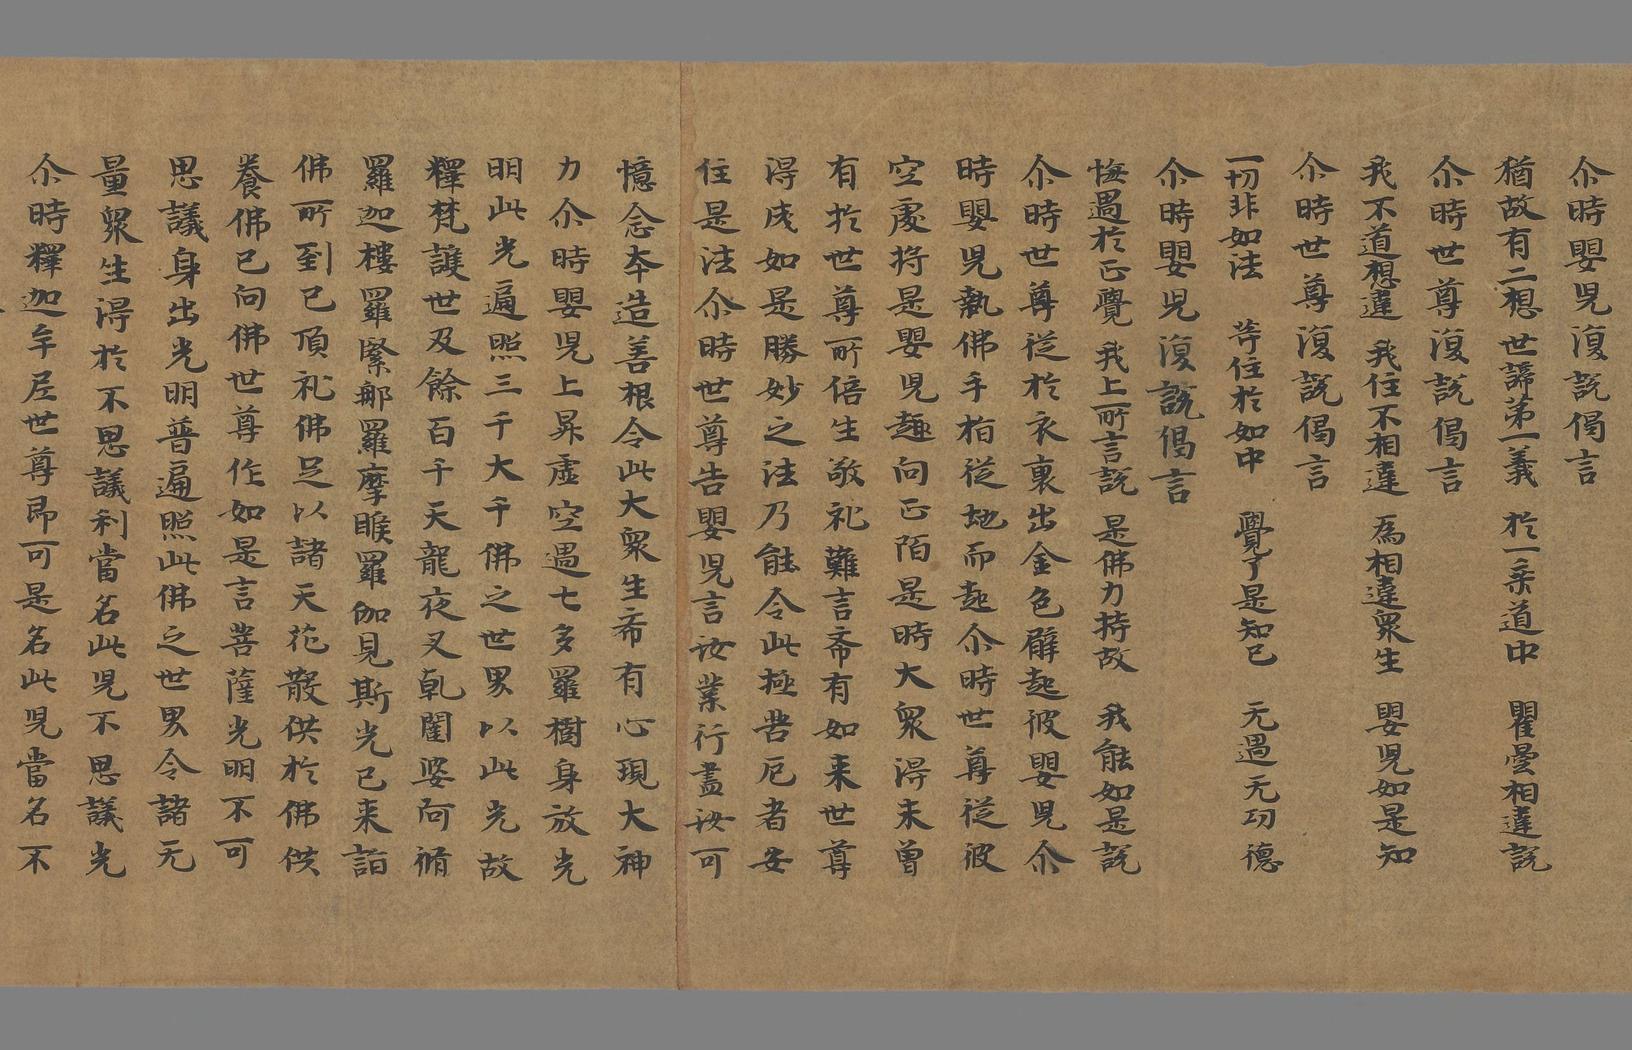 尒時嬰児復説偈言
猶故有二想　世諦苐一義　於一乗道中　瞿曇相違説
尒時世尊復説偈言
我不道想違　我住不相違　為相違衆生　嬰児如是知
尒時世尊復説偈言
一切非如法　等住於如中　覺了是知已　无過无功德
尒時嬰児復説偈言
悔過於正覺　我上所言説　是佛力持故　我能如是説
尒時世尊従於衣裏出金色臂起彼嬰児尒
時嬰児執佛手栢従地而起尒時世尊従彼
空處将是嬰児趣向正陌是時大衆得未曾
有於世尊所倍生敬礼難言希有如来世尊
得成如是勝妙之法乃能令此極苦厄者安
住是法尒時世尊告嬰児言汝業行盡汝可
憶念本造善根令此大衆生希有心現大神
力尒時嬰児上昇虚空過七多羅樹身放光
明此光遍照三千大千佛之世界以此光故
釋梵護世及餘百千天龍夜叉乹闥婆阿脩
羅迦樓羅緊那羅摩睺羅伽見斯光已来詣
佛所到已頂礼佛足以諸天花散供於佛供
養佛已向佛世尊作如是言菩薩光明不可
思議身出光明普遍照此佛之世界令諸无
量衆生得於不思議利當名此児不思議光
尒時釋迦牟尼世尊即可是名此児當名不